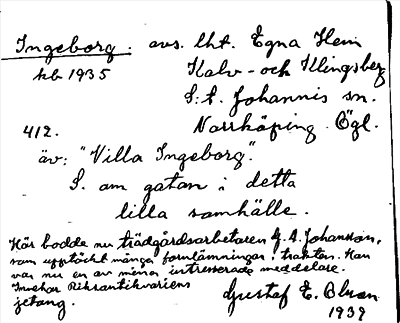 Ingeborg. avs. lht. Egna Hem
kb 1935 Kalv- och Klingsberg
S:t. Johannis sn.
412. Norrköping. Ögl.
äv: "Villa Ingeborg".
S. om gatan i detta
lilla samhälle.
Här bodde nu trädgårdsarbetaren G. A. Johansson,
som upptäckt många fornlämningar i trakten. Han
var nu en av mina intresserade meddelare.
Riksantikvariens
Gustaf E.
1939